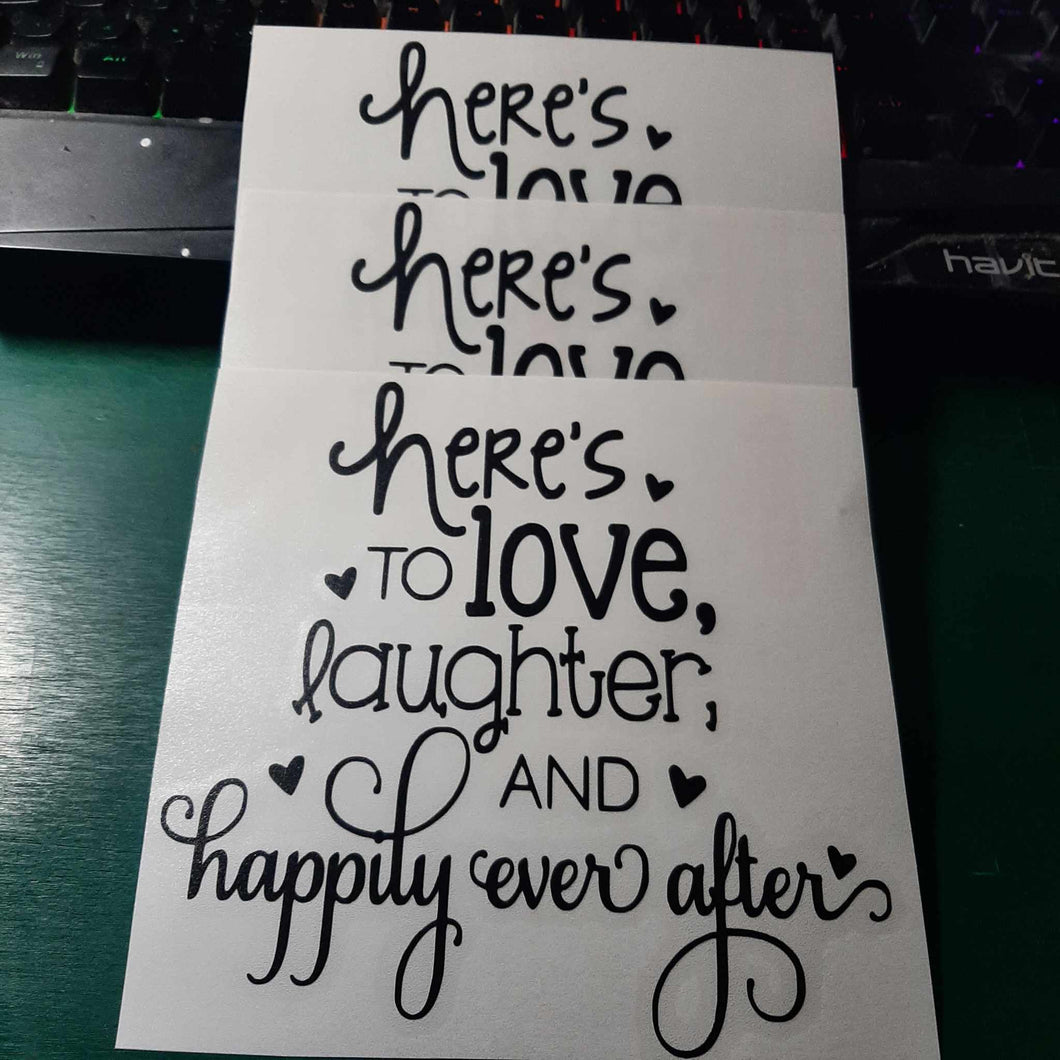 Win
Alt
here's
TO love
havit
here's
TO love
here's
TO love,
laughter,
AND
happily ever after